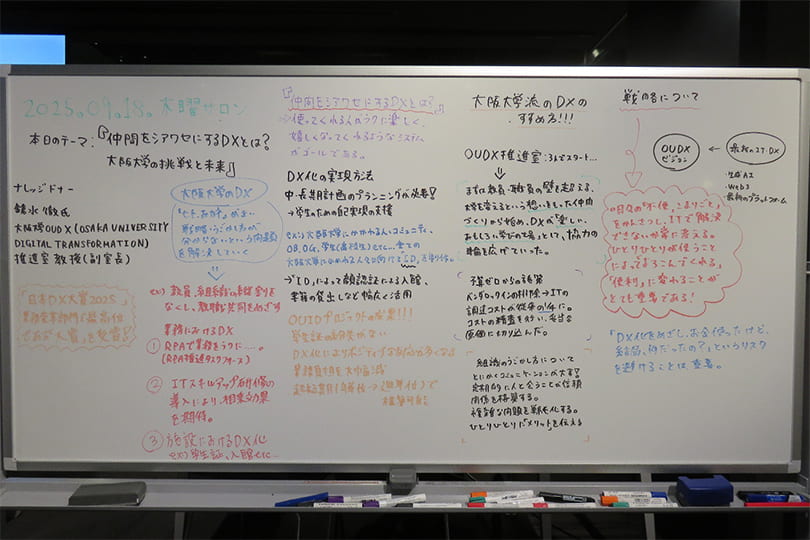 2025.09.18。木曜サロン
本日のテーマ:『仲間をシアワセにするDXとは?
大阪大学の挑戦と未来』
ナレッジドナー
鎗水 徹氏
大阪大学OUDX(OSAKA UNIVERSITY
DIGITAL TRANSFORMATION)
推進室 教授(副室長)
「日本DX大賞2025」
業務変革部門で最高位
である大賞」を受賞!
大阪大学のDX
分からないという問題
を解決していく
ex) 教員、組織の縦割りを
なくし、教職共同をめざす
業務におけるDX
① RPAで業務をラクに….。
(RPA推進タスクフォース)
② ITスキルアップ研修の
導入により、相乗効果
を期待。
③ 施設におけるDX化
ex) 学生証、入館など…
『仲間をシアワセにするDXとは?』
→使ってくれる人がラクに楽しく、
嬉しくなってくれるようなシステム
がゴールである。
DX化の実現方法
中・長期計画のプランニングが必要!
→学生のための自己実現の支援
ex) 大阪大学にかかわる人、コミュニティ、
OB,OG,学生(高校生)etc…全ての
大阪大学にかかわる人を目向けとID,を創り作る。
→ID,によって顔認証による入館、
書籍の貸出しなど幅広く活用
OUIDプロジェクトの成果!!!
学生証の紛失がない
DX化によりポジティブな
業務負担を大幅減
大阪大学流のDXの
すすめ方!!!
OUDX推進室:3人でスタート…
まずは教員・職員の壁を超える、
大学を変えるという想いをもった仲間
づくりから始め、DXの「楽しい、
おもしろい学びの共有」として、協力の
輪を広げていった。
予算ゼロからの挑戦
ベンダーロックインの排除→IT の
調達コストが従来の1/4に。
コストの精査を行い、妥当な
原価に切り込んだ。
組織のうごかし方について
とにかくコミュニケーションが大事!
定期的に人と会うことが信頼
関係を構築する。
複雑な問題を単純化する。
ひとりひとりに"メリット"を伝える
戦略について
OUDX
ビジョン
← 最新のIT・DX
・生成AI
・Web3
・最新のプラットフォーム
日々の"不便、こまりごと"
をかんさつし、ITで解決
できないか常に考える。
ひとりひとりが使うこと
によってよろこんでくれる。
「便利」に変わることが
とても重要である!
「DX化をめざし、お金使ったけど、
結局、何だったの?」というリスク
を避けることは重要。